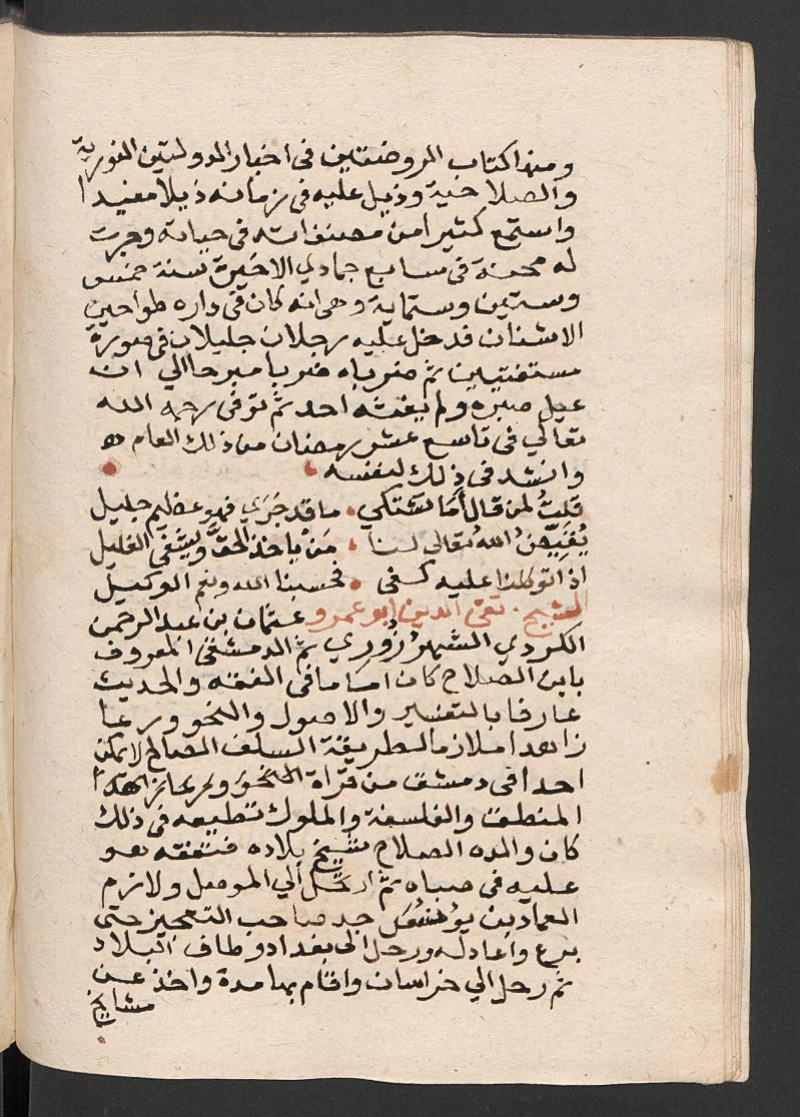 ومنها كتاب الروضتين فى اخبار الدولتين النورية
والصلاحية وذيل عليه فى زمانه ذيلا مفيدا
واستمع كثيرا من مصنفاته فى حياته وجرت
له محنة فى سابع جمادي الاخيرة سنة خمس
وستين وستماية وهى انه كان فى داره طواحين
الاشنان فدخل عليه رجلان جليلان فى صورة
مستفتيين ثم ضرباه ضربا مبرحا الي ان
عيل صبره ولم يغثه احد ثم توفى رحمه الله
تعالي فى تاسع عشر رمضان من ذلك العام
وانشد فى ذلك لنفسه
قلتُ لمن قال أمَا تشتكي ما قد جَرَي فهو عظيم جليل
يُقَيِّضُ اللهُ تعالي لنا مَنْ ياخذ الحقَّ ويشفى الغليل
اذا توكلنا عليه كفى فحسبنا الله ونعم الوكيل
الشيخ تقى الدين ابو عمرو عثمان بن عبد الرحمن
الكردي الشهرزوري ثم الدمشقى المعروف
بابن الصلاح كان اماما فى الفقه والحديث
عارفا بالتفسير والاصول والنحو ورعا
زاهدا ملازما لطريقة السلف الصالح لا يمكن
احدا فى دمشق من قراة
المنطق والفلسفة والملوك تطيعه فى ذلك
كان والده الصلاح شيخ بلاده فتفقه هو
عليه فى صباه ثم ارتحل الي الموصل ولازم
العماد بن يونس جد صاحب التعجيز حتى
برع واعاد له ورحل الى بغداد وطاف البلاد
ثم رحل الي خراسان واقام بها مدة واخذ عن
مشايخ